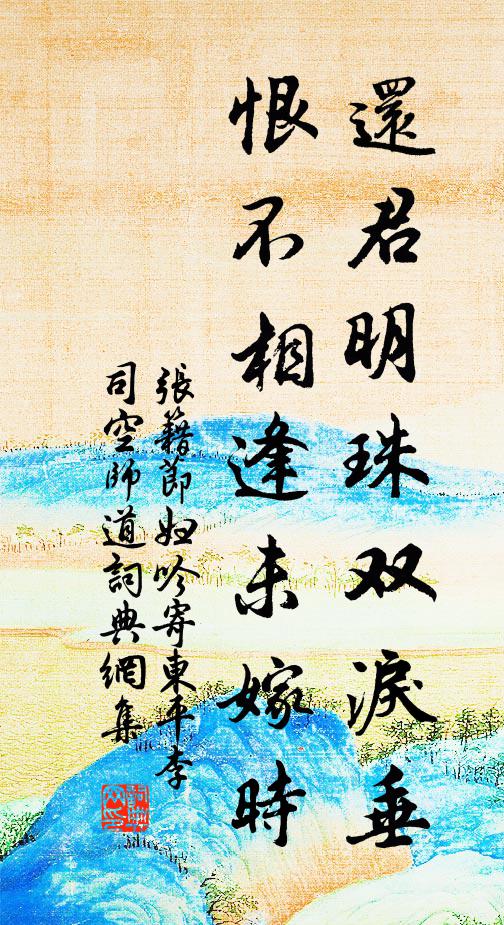 還君明珠双淚垂
恨不相逢未嫁時
張籍節妇吟寄東平李
司空師道詞典網集